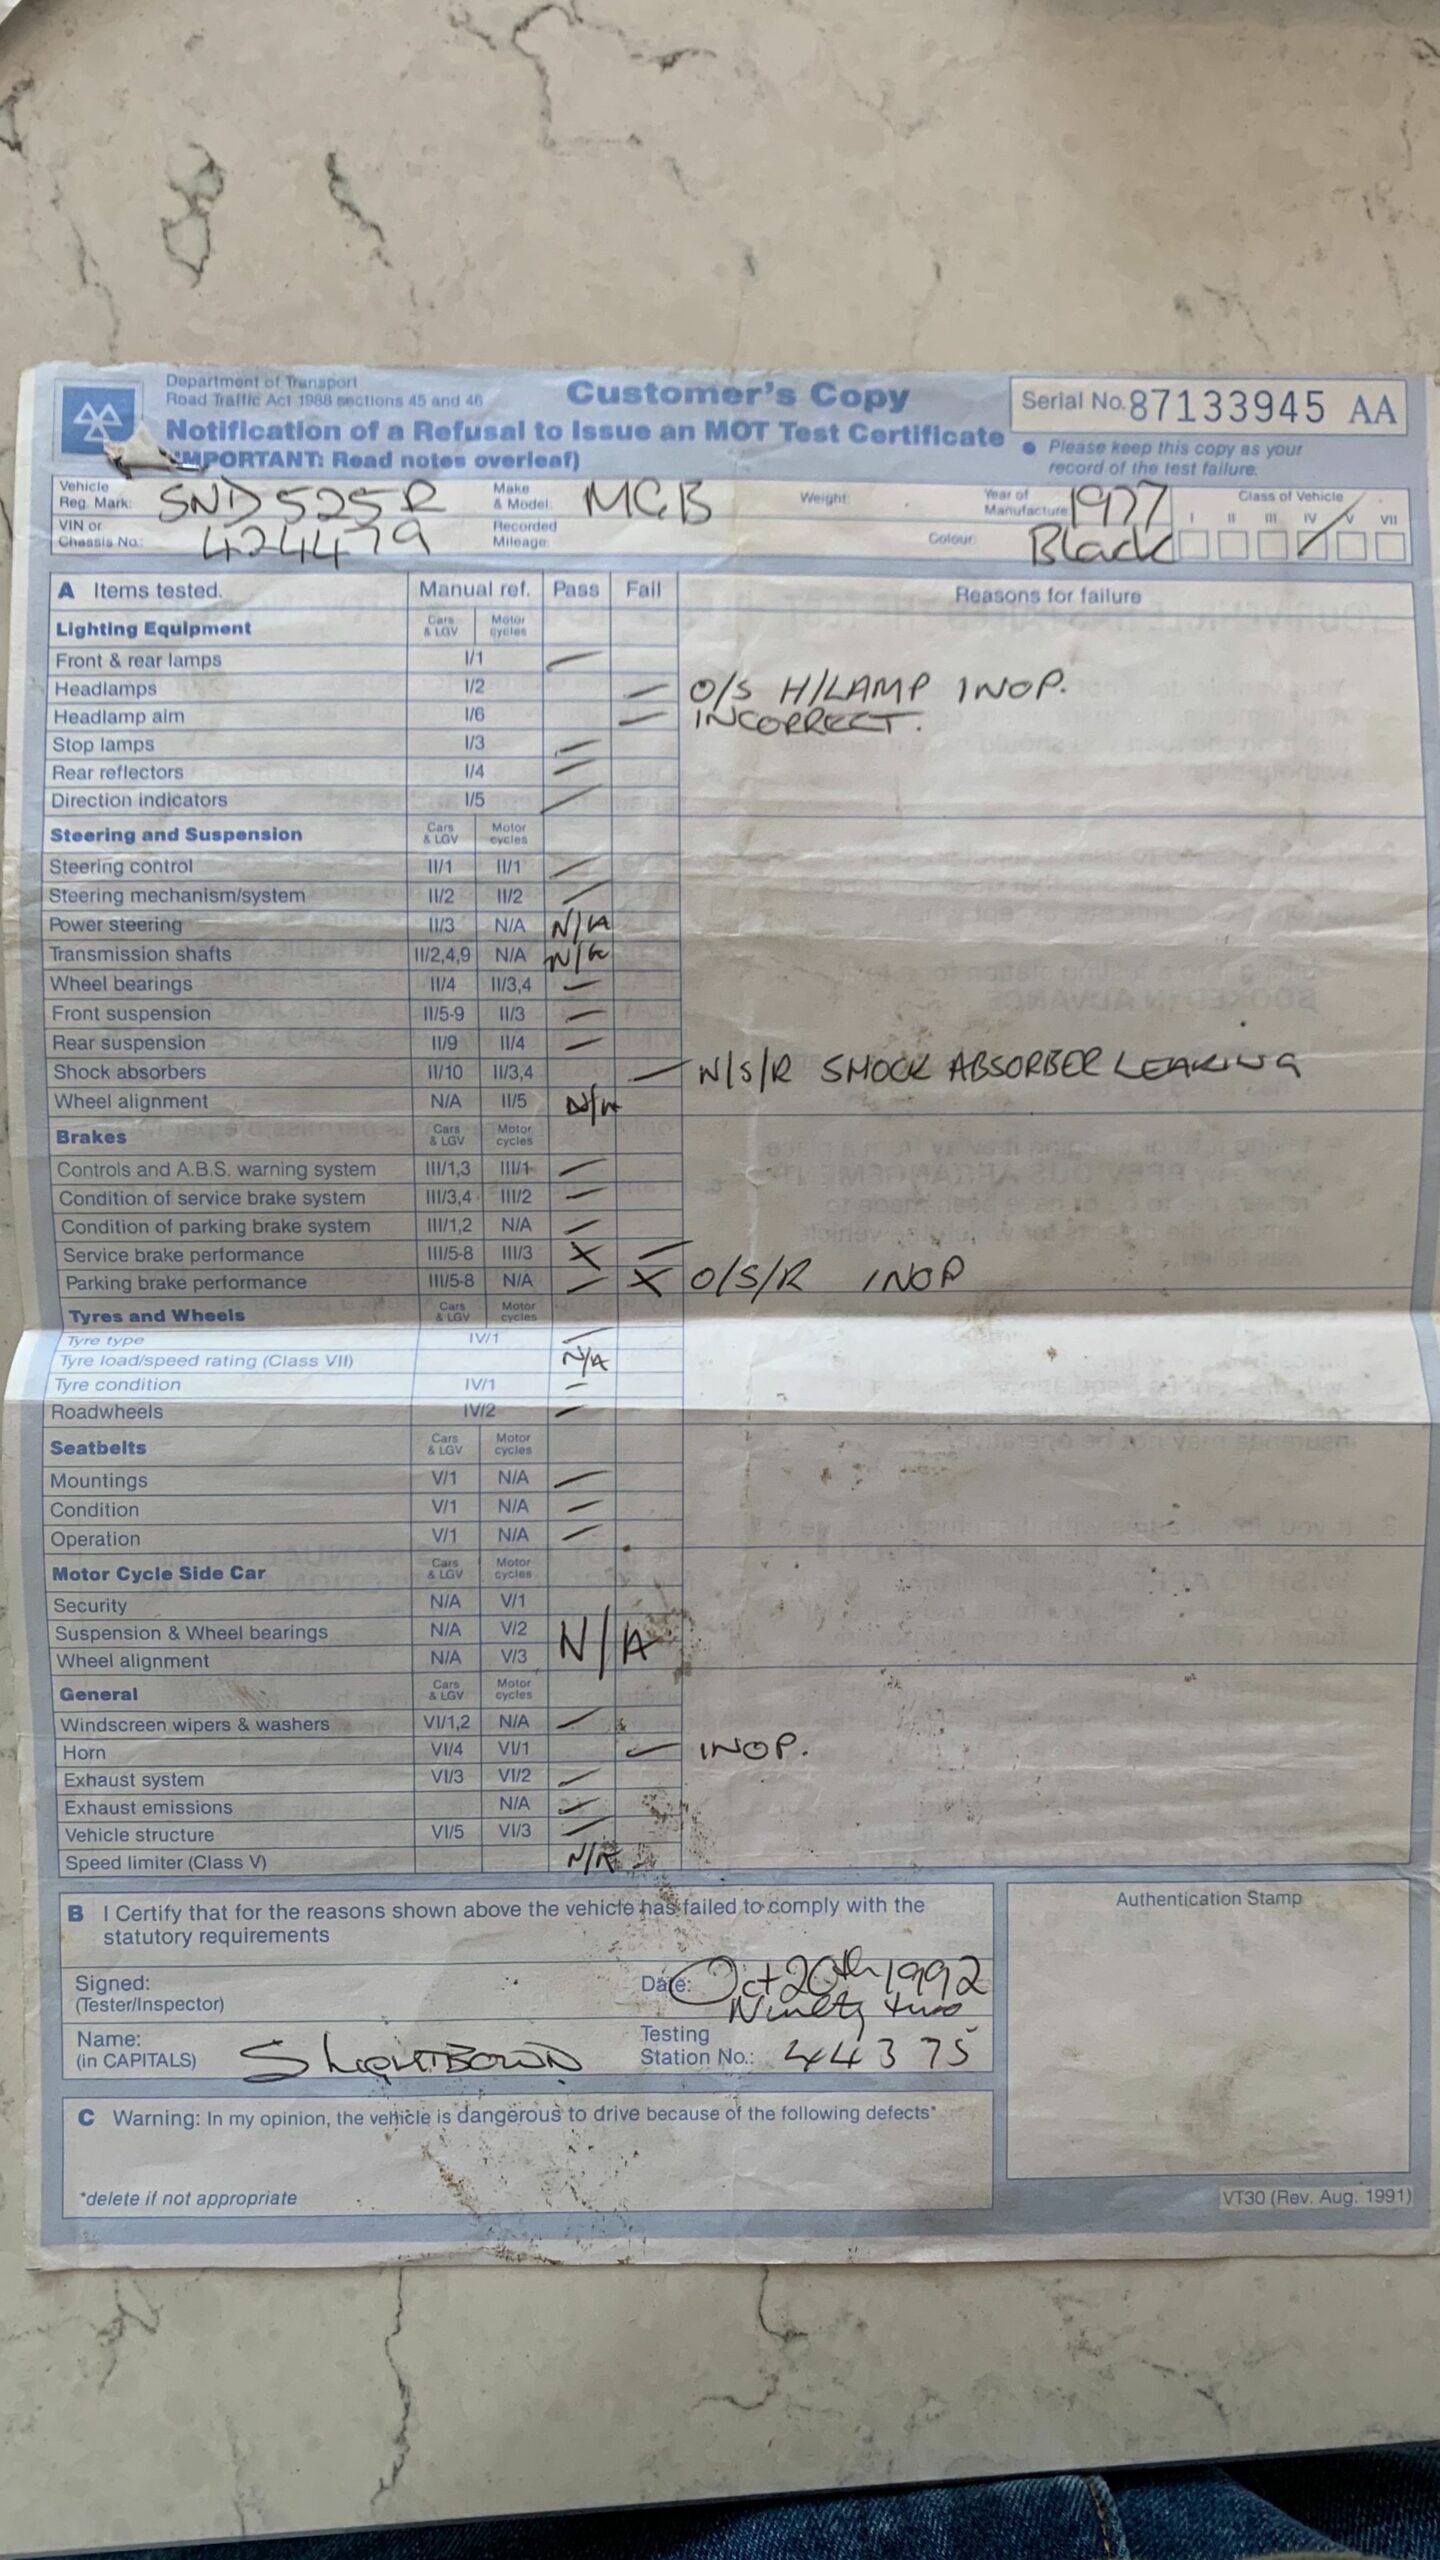 Department of Transport
Road Traffic Act 1988 sections 45 and 46
Customer's Copy
Serial No. 87133945 AA
Notification of a Refusal to Issue an MOT Test Certificate
IMPORTANT: Read notes overleaf)
● Please keep this copy as your
record of the test failure.
Vehicle Reg. Mark: SND 525R Make & Model: MGB Weight: Year of Manufacture 1977 Class of Vehicle
I II III IV V VII
VIN or Chassis No.: 424479 Recorded Mileage: Colour: Black
A Items tested. Manual ref. Pass Fail Reasons for failure
Lighting Equipment Cars & LGV Motor cycles
Front & rear lamps I/1
Headlamps I/2 O/S H/LAMP INOP.
Headlamp aim I/6 INCORRECT.
Stop lamps I/3
Rear reflectors I/4
Direction indicators I/5
Steering and Suspension Cars & LGV Motor cycles
Steering control II/1 II/1
Steering mechanism/system II/2 II/2
Power steering II/3 N/A N/A
Transmission shafts II/2,4,9 N/A N/A
Wheel bearings II/4 II/3,4
Front suspension II/5-9 II/3
Rear suspension II/9 II/4
Shock absorbers II/10 II/3,4 N/S/R SHOCK ABSORBER LEAKING
Wheel alignment N/A II/5 N/A
Brakes Cars & LGV Motor cycles
Controls and A.B.S. warning system III/1,3 III/1
Condition of service brake system III/3,4 III/2
Condition of parking brake system III/1,2 N/A
Service brake performance III/5-8 III/3 X
Parking brake performance III/5-8 N/A X O/S/R INOP
Tyres and Wheels Cars & LGV Motor cycles
Tyre type IV/1
Tyre load/speed rating (Class VII) N/A
Tyre condition IV/1
Roadwheels IV/2
Seatbelts Cars & LGV Motor cycles
Mountings V/1 N/A
Condition V/1 N/A
Operation V/1 N/A
Motor Cycle Side Car Cars & LGV Motor cycles
Security N/A V/1
Suspension & Wheel bearings N/A V/2 N/A
Wheel alignment N/A V/3
General Cars & LGV Motor cycles
Windscreen wipers & washers VI/1,2 N/A
Horn VI/4 VI/1 INOP.
Exhaust system VI/3 VI/2
Exhaust emissions N/A
Vehicle structure VI/5 VI/3
Speed limiter (Class V) N/A
B I Certify that for the reasons shown above the vehicle has failed to comply with the
statutory requirements
Authentication Stamp
Signed: Date: Oct 20th 1992
(Tester/Inspector) Ninety two
Name: (in CAPITALS) S LIGHTBOWN Testing Station No.: 44375
C Warning: In my opinion, the vehicle is dangerous to drive because of the following defects*
*delete if not appropriate
VT30 (Rev. Aug. 1991)